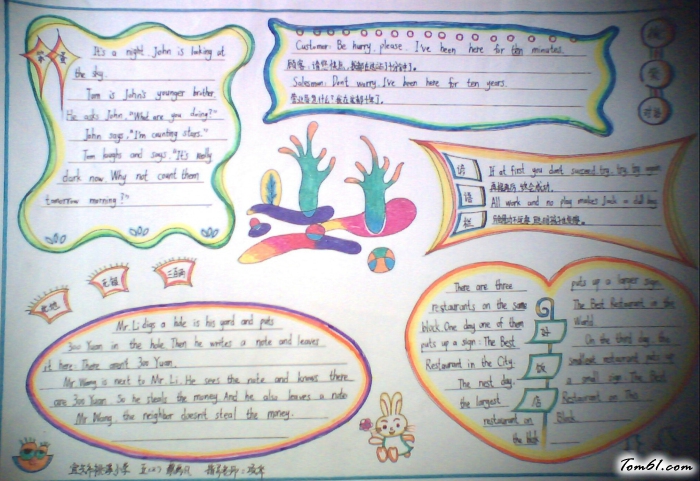 It's a night. John is looking at
the sky.
Tom is John's younger brother.
He asks John, "What are you doing?"
John says, "I'm counting stars."
Tom laughs and says, "It's really
dark now Why not count them
tomorrow morning?"
Customer: Be hurry, please. I've been here for ten minutes.
顾客:请您快点,我都在这了十分钟了。
Salesman: Don't worry. I've been here for ten years.
If at first you don't succeed try, try, try again
再接再厉 终会成功。
All work and no play makes Jack a dull boy.
谚
语
栏
此地
无银
三百两
Mr. Li digs a hole is his yard and puts
300 Yuan in the hole. Then he writes a note and leaves
it here: There aren't 300 Yuan.
Mr Wang is next to Mr. Li. He sees the note and knows there
are 300 Yuan. So he steals the money. And he also leaves a note
Mr Wang the neighbor doesn't steal the money.
There are three
restaurants on the same
block. One day one of them
puts up a sign: The Best
Restaurant in the City.
The next day,
the largest
restaurant on
the block
puts up a larger sign:
The Best Restaurant in the
World.
On the third day, the
smallest restaurant puts up
a small sign: The Best
Restaurant on This
Block.
好
饭
店
Tom61.com